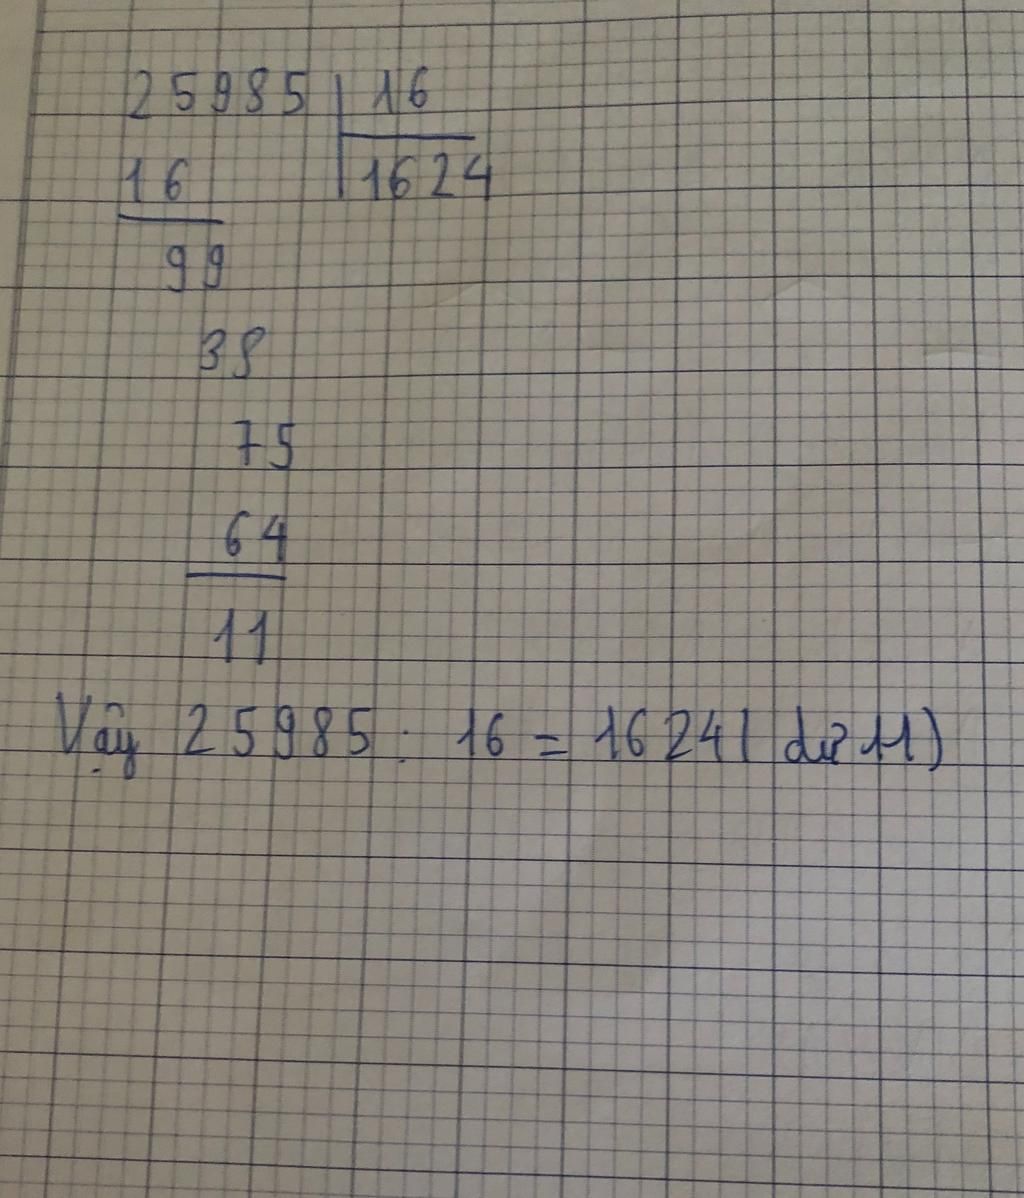 25985 16
16 1624
99
38
75
64
11
Vậy 25985 : 16 = 1624 ( dư 11)